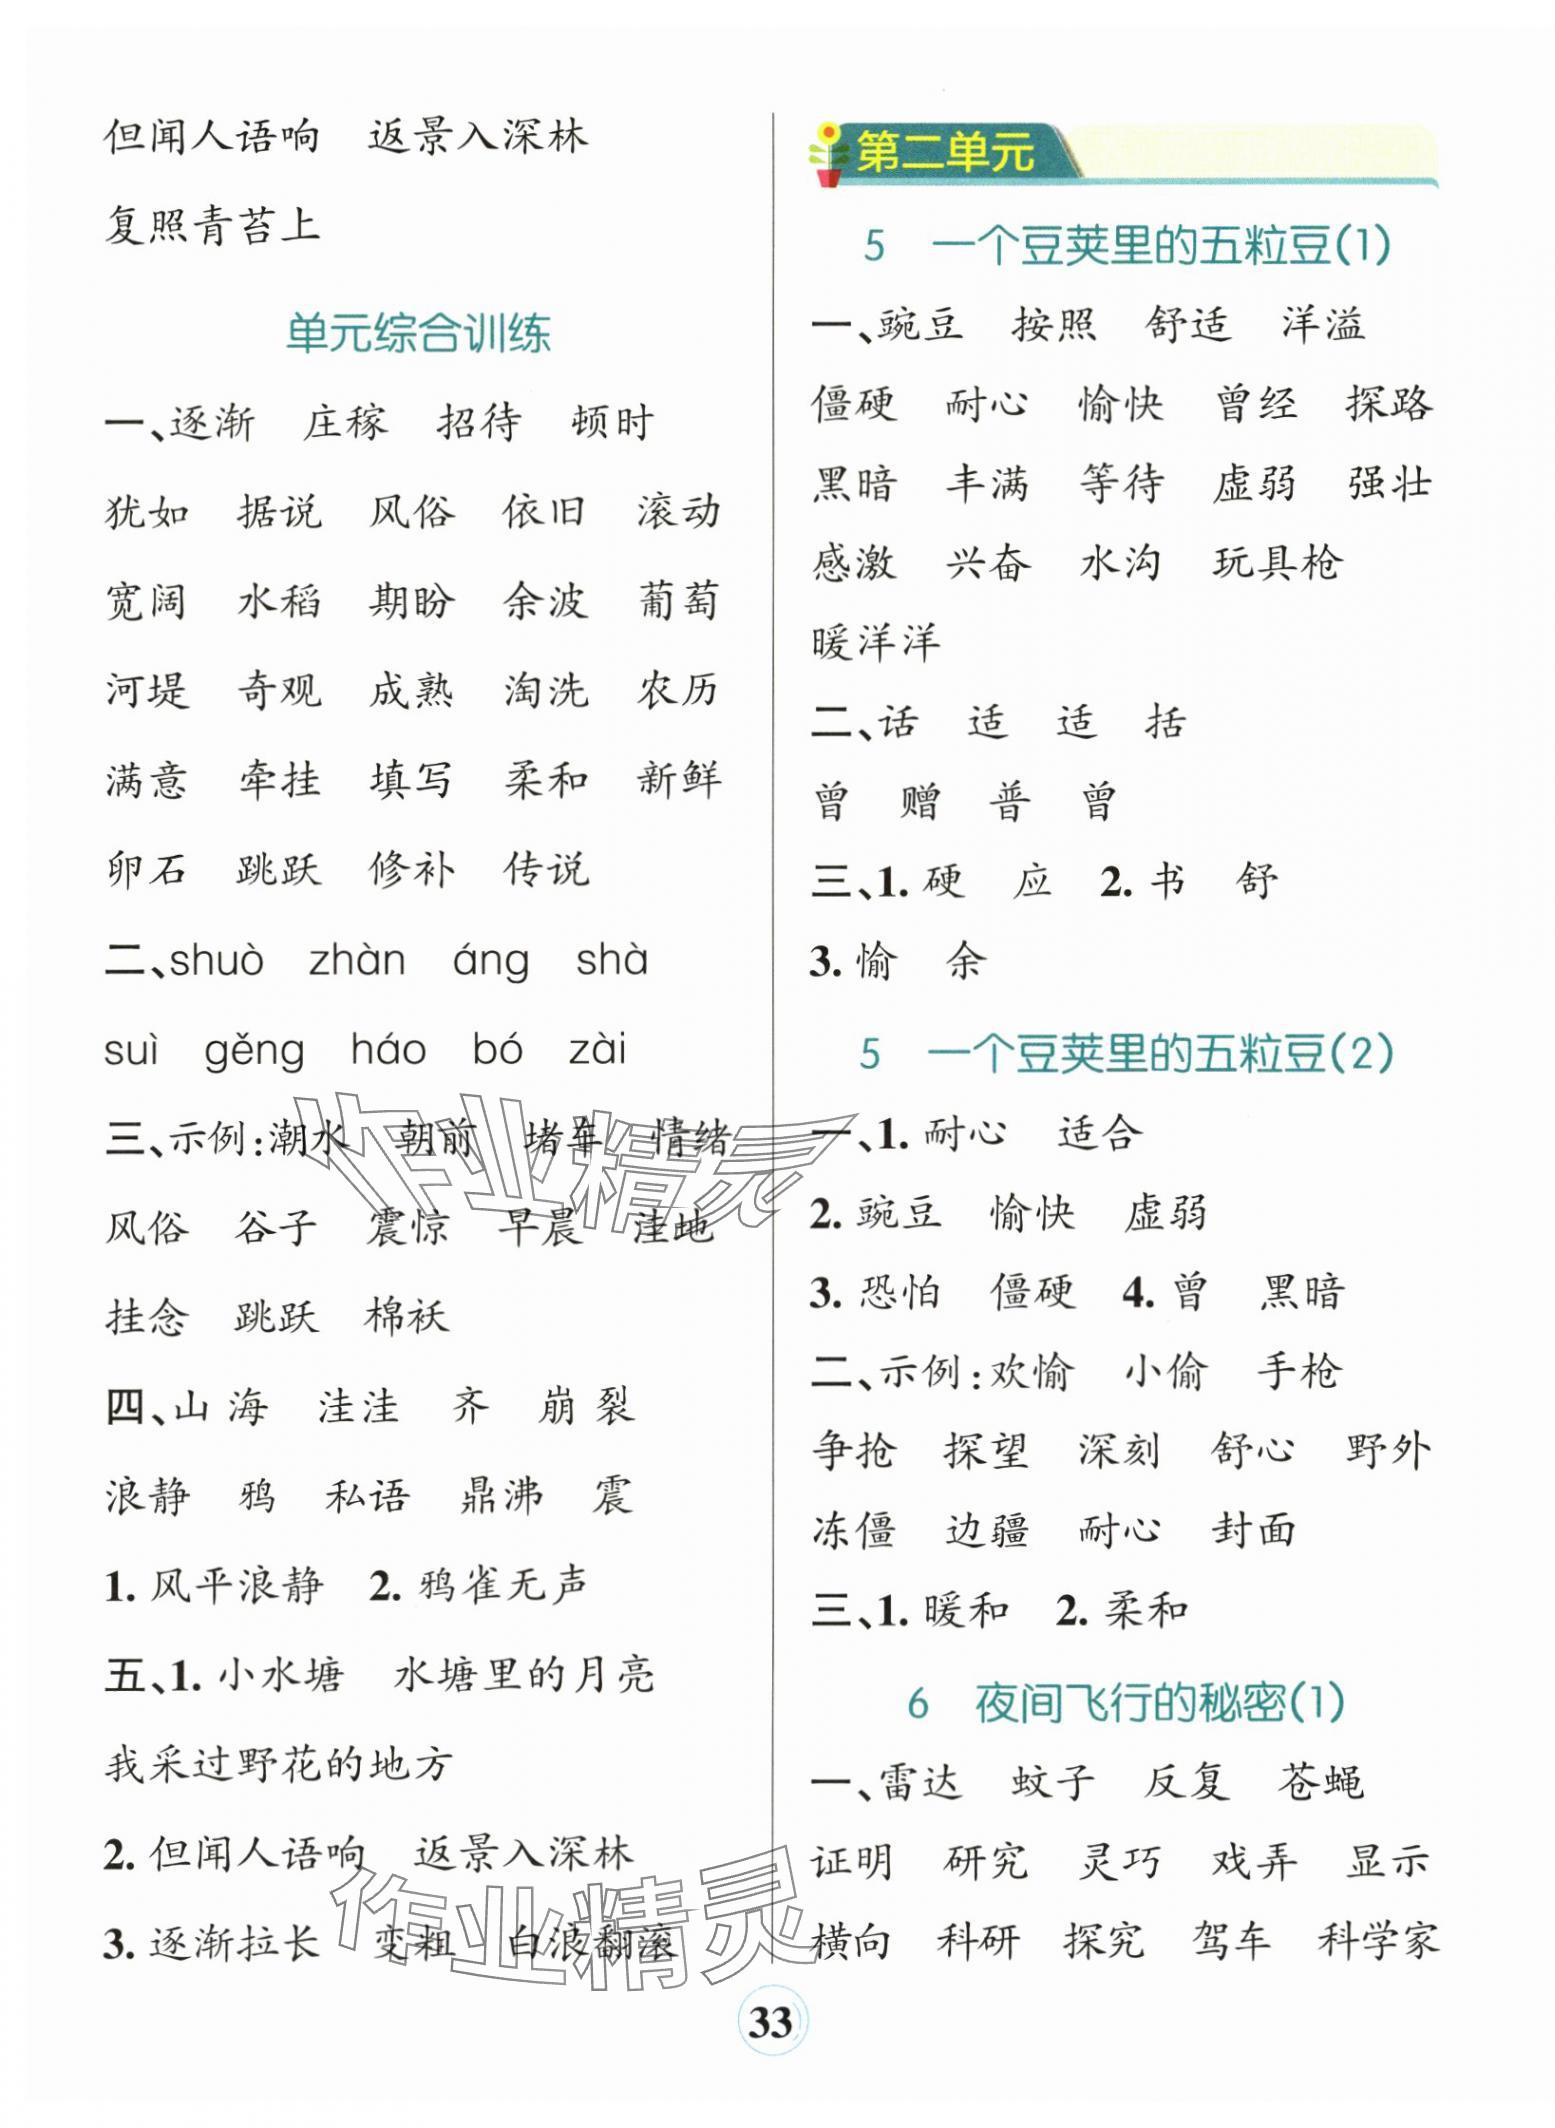 但闻人语响 返景入深林
复照青苔上
单元综合训练
一、逐渐 庄稼 招待 顿时
犹如 据说 风俗 依旧 滚动
宽阔 水稻 期盼 余波 葡萄
河堤 奇观 成熟 淘洗 农历
满意 牵挂 填写 柔和 新鲜
卵石 跳跃 修补 传说
二、shuò zhàn áng shà
suì gěng háo bó zài
三、示例:潮水 朝前 堵车 情绪
风俗 谷子 震惊 早晨 洼地
挂念 跳跃 棉袄
四、山 海 洼洼 齐 崩 裂
浪静 鸦 私语 鼎沸 震
1. 风平浪静 2. 鸦雀无声
五、1. 小水塘 水塘里的月亮
我采过野花的地方
2. 但闻人语响 返景入深林
3. 逐渐拉长 变粗 白浪翻滚
第二单元
5 一个豆荚里的五粒豆(1)
一、豌豆 按照 舒适 洋溢
僵硬 耐心 愉快 曾经 探路
黑暗 丰满 等待 虚弱 强壮
感激 兴奋 水沟 玩具枪
暖洋洋
二、话 适 适 括
曾 赠 普 曾
三、1. 硬 应 2. 书 舒
3. 愉 余
5 一个豆荚里的五粒豆(2)
一、1. 耐心 适合
2. 豌豆 愉快 虚弱
3. 恐怕 僵硬 4. 曾 黑暗
二、示例:欢愉 小偷 手枪
争抢 探望 深刻 舒心 野外
冻僵 边疆 耐心 封面
三、1. 暖和 2. 柔和
6 夜间飞行的秘密(1)
一、雷达 蚊子 反复 苍蝇
证明 研究 灵巧 戏弄 显示
横向 科研 探究 驾车 科学家
33
作业精灵
作业精灵